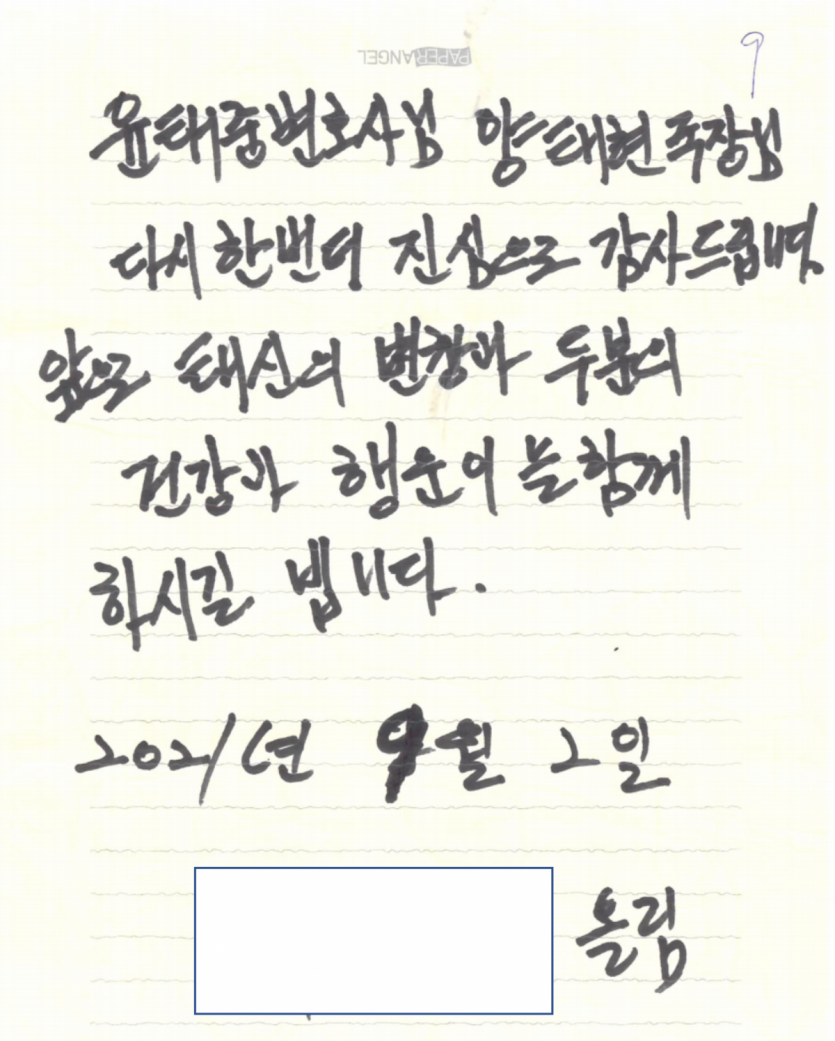 PAPER ANGEL
9
윤태중변호사님 양태현국장님
다시 한번더 진심으로 감사드립니다.
앞으로 태신의 번창과 두분의
건강과 행운이 늘 함께
하시길 빕니다.
2021년 9월 2일
올림